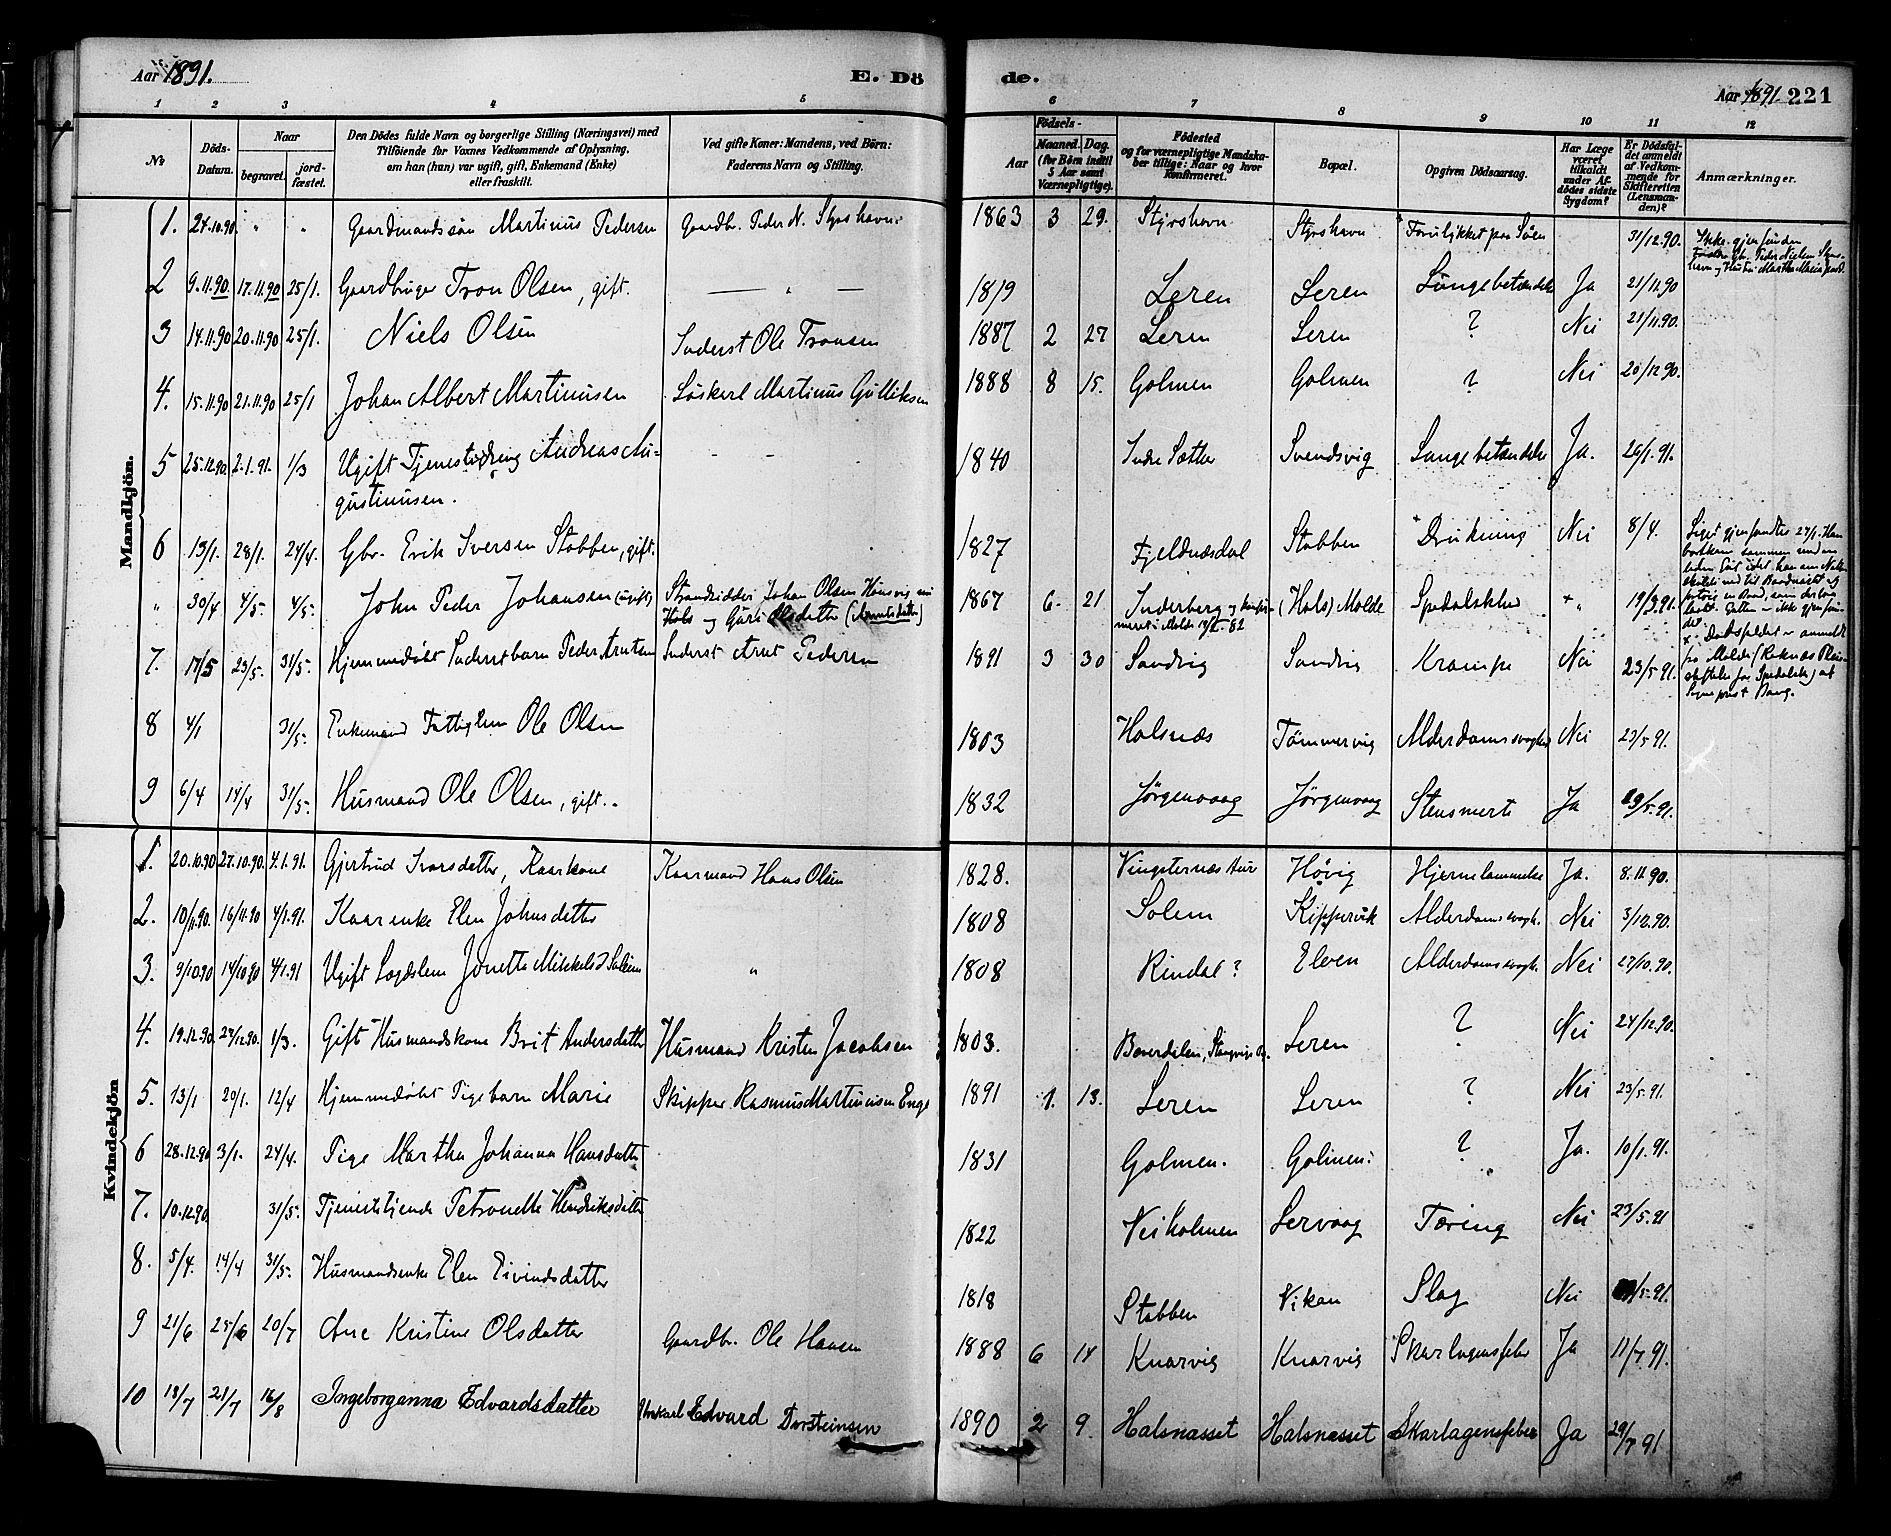 Aar 1891.
E. Dö
de.
Aar 1891 221
1 2 3 4 5 6 7 8 9 10 11 12
No
Döds-
Datum.
Naar
begravet.
jord-
fæstet.
Den Dödes fulde Navn og borgerlige Stilling (Næringsvei) med
Tilföiende for Voxnes Vedkommende af Oplysning,
om han (hun) var ugift, gift, Enkemand (Enke)
eller fraskilt.
Ved gifte Koner: Mandens, ved Börn:
Faderens Navn og Stilling.
Födsels-
Aar
Maaned. Dag.
(for Börn indtil
5 Aar samt
Værnepligtige).
Födested
og for værnepligtige Mandska-
ber tillige: Naar og hvor
konfirmeret.
Bopæl.
Opgiven Dödsaarsag.
Har Læge
været
tilkaldt
under Af-
dödes sidste
Sygdom?
Er Dödsfal-
det anmeldt
af Vedkom-
mende for
Skifteretten
(Lensman-
den)?
Anmærkninger.
Mandkjön.
1. 24.10.90. " " Gaardmandssön Martinus Pedersen Gaardbr. Peder N. Styrshavn. 1863 3 29. Styrshavn Styrshavn Forulykket paa Söen 31/12.90. Ikke gjenfunden
Gb. Peder Nielsen Styrs-
havn og Hustru Martha Maria
2 9.11.90 17.11.90 25/1. Gaardbruger Tron Olsen, gift. — " — 1819 Leren Leren Lungebetændelse Ja 21/11.90
3 14.11.90 20.11.90 25/1. Niels Olsen Inderst Ole Tronsen 1887 2 27 Leren Leren ? Nei 21/11.90.
4. 15.11.90 21.11.90 25/1 Johan Albert Martinusen Löskarl Martinus Gulliksen 1888 8 15. Golmen Golmen ? Nei 20/12 90.
5 25.12.90 2.1.91. 1/3 Ugift Tjenestedreng Andreas Au-
gustinusen. - - 1840 Indre Sætter Svendsvig Lungebetændelse Ja. 26/1.91.
6 13/1. 28/1. 24/4. Gbr. Erik Iversen Stobben, gift. 1827 Fjeldnæsdal Stobben Drukning Nei 8/4. Liget gjenfandtes 27/1. Han
bortkom sammen med en
" 30/4 4/5. 4/5. John Peder Johansen (ugift) Strandsidder Johan Olsen Hønsvig
Hals og Guri Olsdatter 1867 6. 21 Inderberg og konfir-
meret i Molde (Hals) Molde Spedalskhed 19/9.91.
x Dødsfaldet er anmeldt
fra Molde (Reknæs Pleie-
stiftelse for Spedalske) af
Sognepræst Bang.
7. 17/5 23/5. 31/5. Hjemmedöbt Inderstbarn Peder Arntsen Inderst Arnt Pedersen 1891 3 30 Sandvig Sandvig Krampe Nei 23/5 91.
8 4/1 31/5. Enkemand Fattiglem Ole Olsen 1803 Halsnæs Tömmervig Alderdomssvaghed Nei 23/5 91.
9 6/4 14/4 31/5. Husmand Ole Olsen, gift. 1832 Jörgenvaag Jörgenvaag Stensmerte Ja /5.91.
Kvindekjön
1. 20.10.90 27.10.90. 4.1.91. Gjertrud Ivarsdatter, Kaarkone Kaarmand Hans Olsen 1828. Vingsternæs Aur Høvig Hjernelammelse Ja. 8.11.90.
2. 10/11.90. 16/11.90 4/1.91. Kaarenke Elen Johnsdatter 1808 Solem Kippervik Alderdomssvagh. Nei 3/12.90.
3. 9/10.90 14/10.90 4/1.91 Ugift Lægdslem Jonetta Mikkelsd. " 1808 Rindal? Elven Alderdomssvagh. Nei 27/10.90.
4. 19.12.90. 24/12.90. 1/3. Gift Husmandskone Brit Andersdatter Husmand Kristen Jacobsen 1803. Bøverdalen, Leren ? Nei 24/12.90.
5. 13/1 20/1. 12/4 Hjemmedöbt Pigebarn Marie Skipper Rasmus Martinusen Enge 1891 1. 13. Leren Leren ? Nei 23/5.91.
6 28.12.90 3/1. 24/4. Pige Martha Johanna Hansdatter 1831 Golmen. Golmen. ? Ja. 10/1.91.
7. 10.12.90. 31/5. Tjenestetjende Petronelle Hendriksdatter 1822 Veiholmen Lervaag Tæring Nei 23/5.91
8. 5/4. 14/4 31/5. Husmandsenke Elen Eivindsdatter 1818 Stobben Vikan Slag Nei /5.91.
9 21/6 25/6 20/7 Ane Kristine Olsdatter Gaardbr. Ole Hansen 1888 6 14 Knarvig Knarvig Skarlagensfeber Ja 11/7.91.
10 18/7 21/7 16/8 Ingeborganna Edvardsdatter Edvard Torsteinsen 1890 2 9. Halsnæsset Halsnæsset Skarlagensfeber Ja 29/7 91